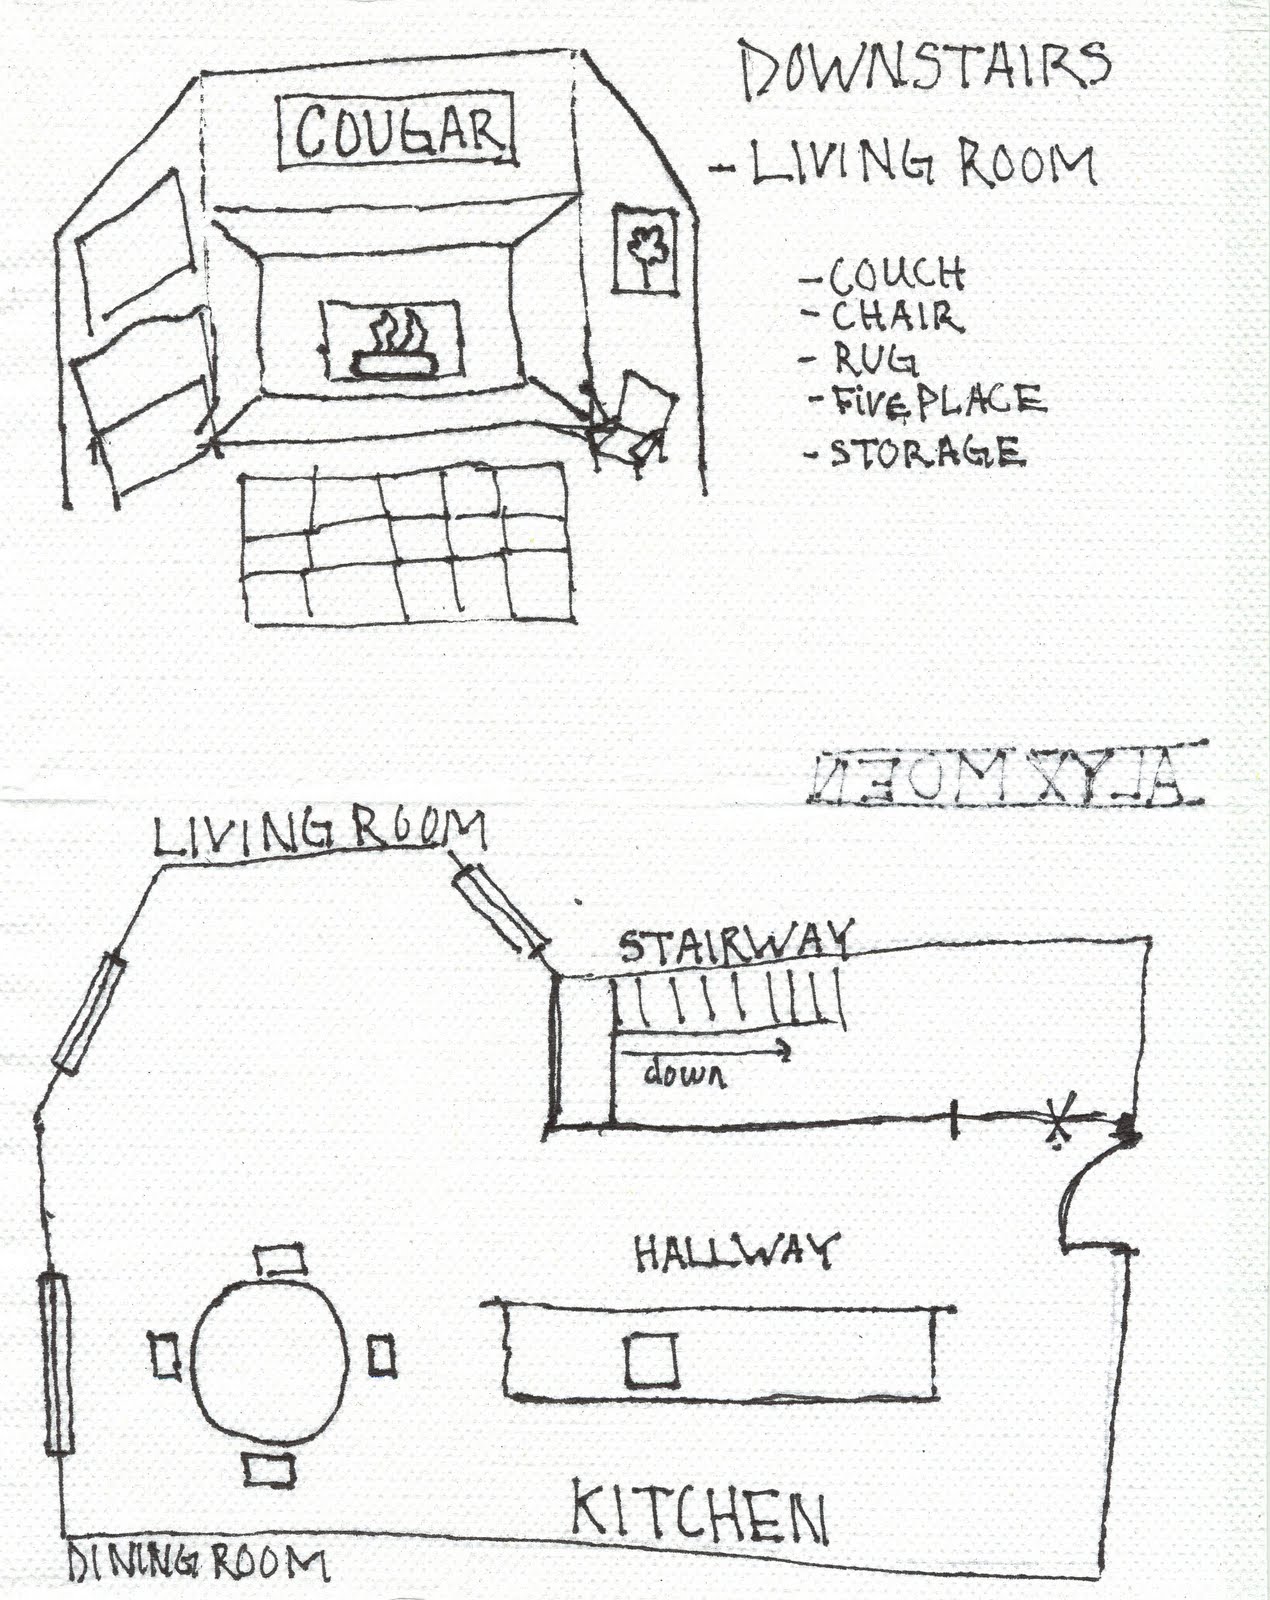 COUGAR
DOWNSTAIRS
- LIVING ROOM
- COUCH
- CHAIR
- RUG
- FivePLACE
- STORAGE
ALYX MOEN
LIVING ROOM
STAIRWAY
down
HALLWAY
KITCHEN
DINING ROOM